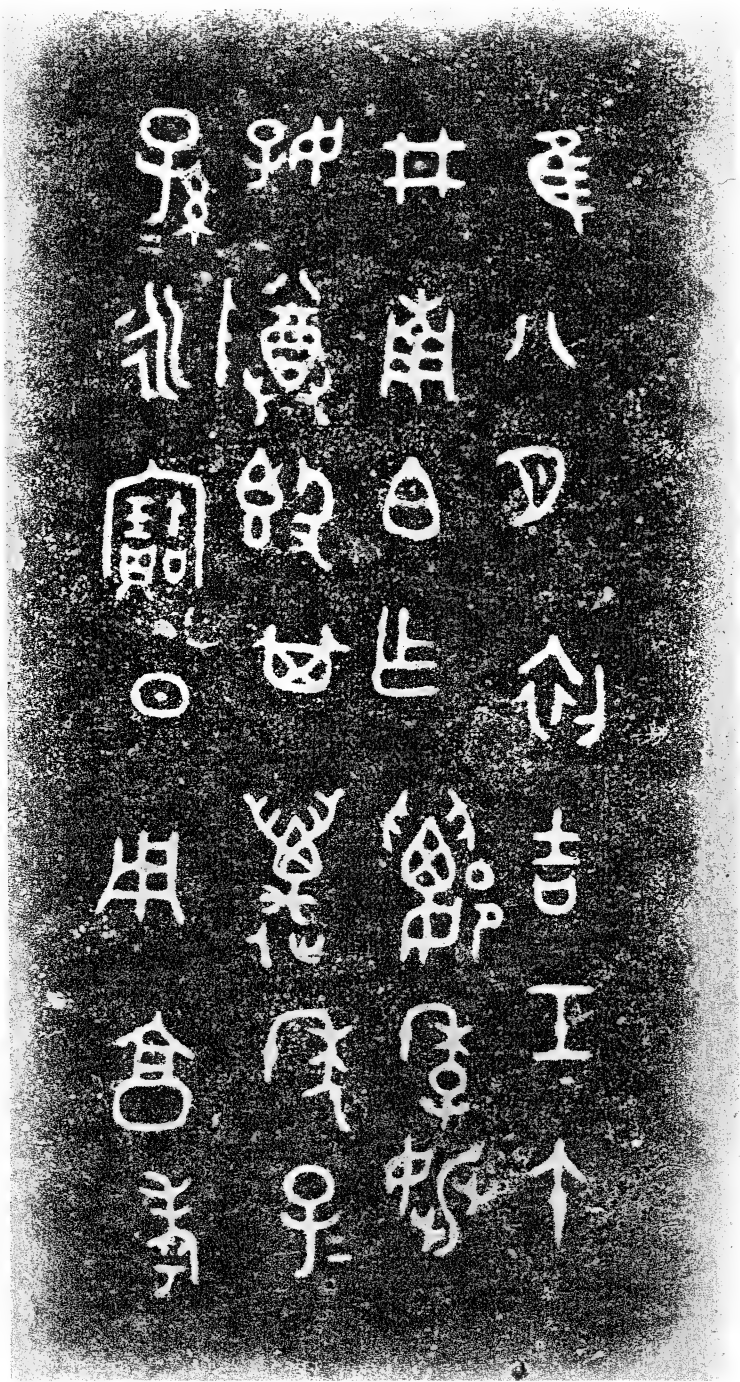 隹八月初吉壬午
井南白乍季姚
好尊𣪘其萬年子=
孫=永寶日用享孝